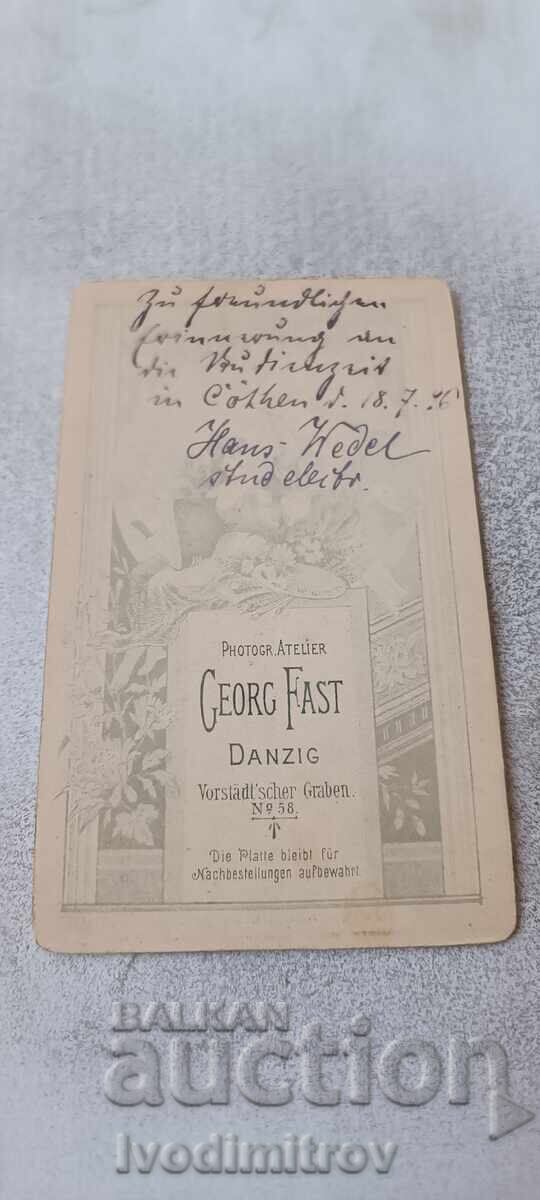 Zu freundlichen
Erinnerung an
die Studienzeit
in Cöthen d. 18. 7.
Hans Wedel
stud
PHOTOGR. ATELIER
GEORG FAST
DANZIG
Vorstädt'scher Graben.
No 58.
Die Platte bleibt für
Nachbestellungen aufbewahrt.
BALKAN
auction
Ivodimitrov